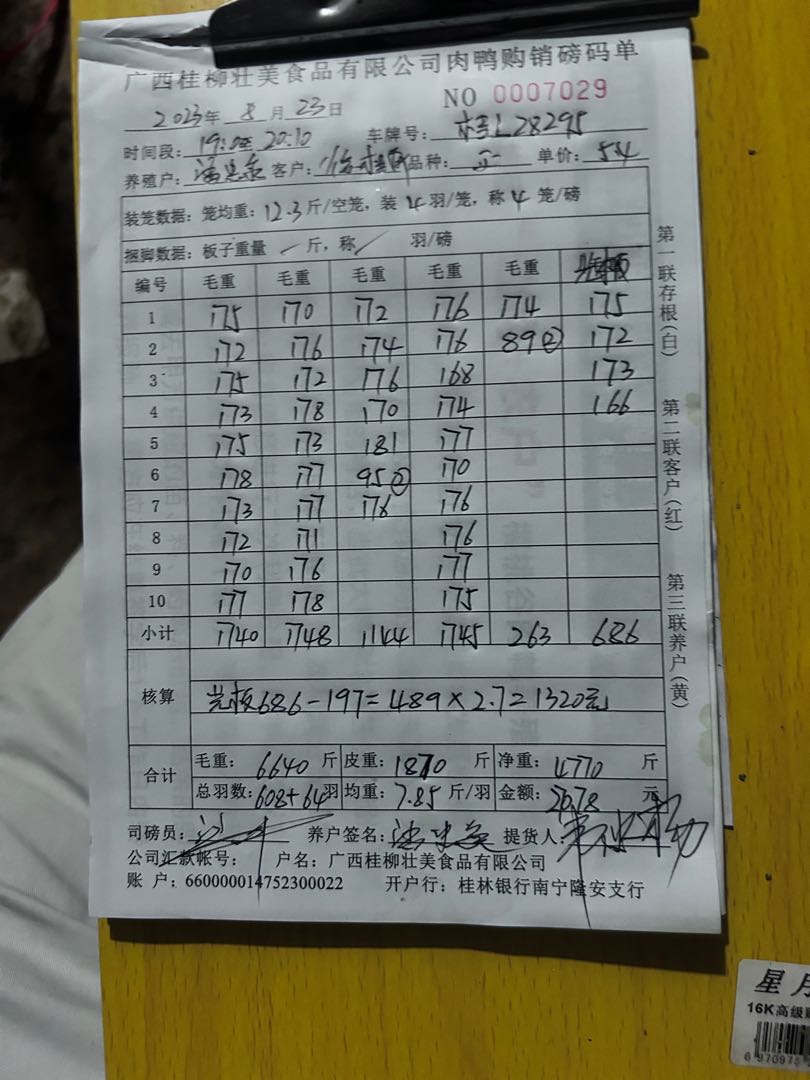 广西桂柳壮美食品有限公司肉鸭购销磅码单
2023年 8月 23日 NO 0007029
时间段: 19:0至20:10 车牌号: 桂L28295
养殖户: 客户: 品种: 单价: 54
装笼数据: 笼均重: 12.3斤/空笼, 装 4 羽/笼, 称 4 笼/磅
捆脚数据: 板子重量 / 斤, 称 / 羽/磅
编号 毛重 毛重 毛重 毛重 毛重
1 175 170 172 176 174 175
2 172 176 174 176 89② 172
3 175 172 176 168 173
4 173 178 170 174 166
5 175 173 181 177
6 178 177 95② 170
7 173 177 176 176
8 172 171 176
9 170 176 177
10 177 178 175
小计 1740 1748 1144 1745 263 686
核算 光板686-197=489×2.7=1320元
合计 毛重: 6640 斤 皮重: 1870 斤 净重: 4770 斤
总羽数: 608+64羽 均重: 7.85 斤/羽 金额: 26.78 元
司磅员: 养户签名: 提货人:
公司汇款帐号: 户名: 广西桂柳壮美食品有限公司
账 户: 660000014752300022 开户行: 桂林银行南宁隆安支行
第一联存根(白)
第二联客户(红)
第三联养户(黄)
星月
16K高级
6 97097